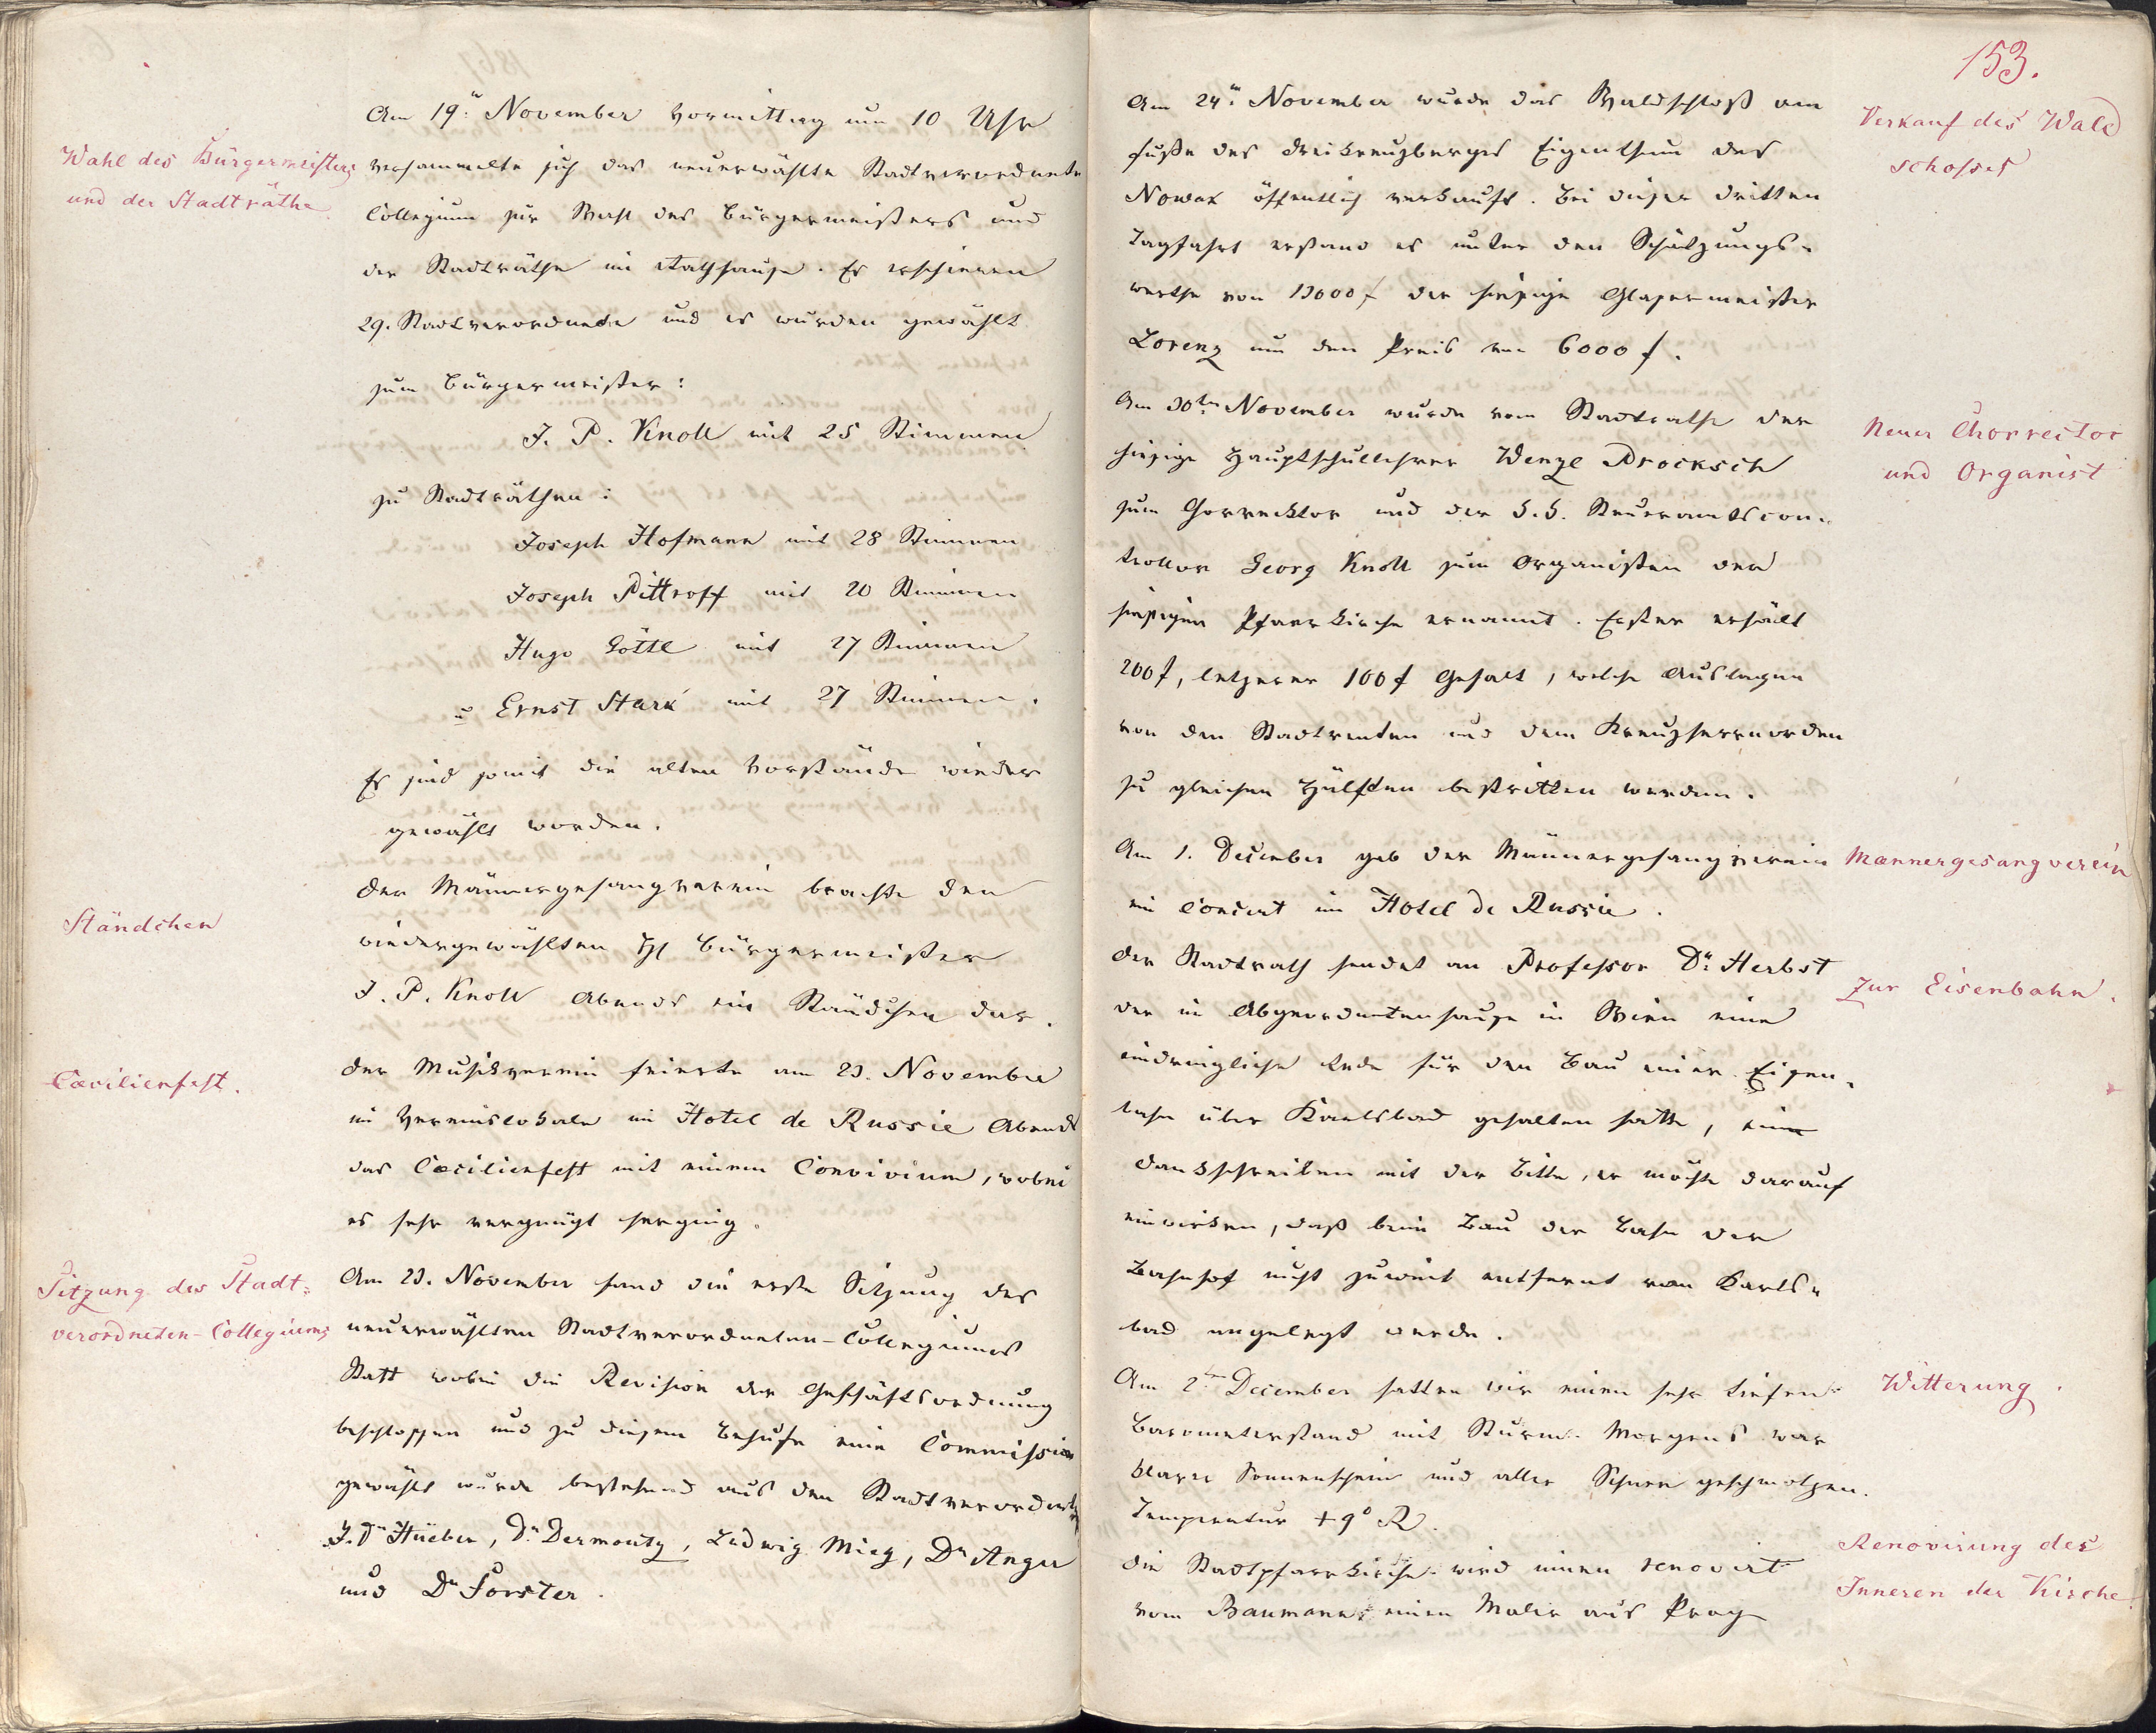 Am 19: November Vormittag um 10 Uhr
Wahl des Bürgermeisters
und der Stadträthe
versammelte sich das neuerwählte Stadtverordnete
Collegium zur Wahl des Bürgermeisters und
der Stadträthe im Rathhause. Es erschienen
29. Stadtverordnete und es wurden gewählt
zum Bürgermeister:
J. P. Knoll mit 25 Stimmen
zu Stadträthen:
Joseph Hofmann mit 28 Stimmen
Joseph Pittroff mit 20 Stimmen
Hugo Göttl mit 27 Stimmen
u Ernst Stark mit 27 Stimmen.
Es sind somit die alten Vorstände wieder
gewählt worden.
Ständchen
Der Männergesangverein brachte den
wiedergewählten H Bürgermeister
J. P. Knoll Abends ein Ständchen dar.
Cæcilienfest.
Der Musikverein feierte am 23. November
im Vereinslokale im Hotel de Russie Abends
das Cæcilienfest mit einem Convivium, wobei
es sehr vergnügt herging.
Sitzung des Stadt-
verordneten-Collegiums
Am 23. November fand die erste Sitzung des
neuerwählten Stadtverordneten-Collegiums
Statt wobei die Revision der Geschäftsordnung
beschlossen und zu diesem Behufe eine Commission
gewählt wurde bestehend aus den Stadtverordneten
J. Dr Hueber, Dr. Dermouty, Ludwig Mieg, Dr Anger
und Dr Forster.
153.
Am 24: November wurde das Waldschloß am
Verkauf des Wald
schosses
Fuße des Dreikreuzberges Eigenthum des
Nowak öffentlich verkauft. Bei dieser dritten
Tagfahrt erstand es unter den Schätzungs-
werthe von 13000 f der hiesige Glasermeister
Lorenz um den Preis von 6000 f.
Neuer Chorrector
und Organist
Am 30ten November wurde vom Stadtrathe der
hiesige Hauptschullehrer Wenzl Procksch
zum Chorrektor und der k.k. Steueramtscon-
trollor Georg Knoll zum Organisten der
hiesigen Pfarrkirche ernannt. Erster erhält
200 f, letzerer 100 f Gehalt, welche Auslagen
von den Stadtrenten und dem Kreuzherrnorden
zu gleichen Hälften bestritten werden.
Mænnergesangverein
Am 1. December gab der Männergesangverein
ein Concert im Hotel de Russie.
Zur Eisenbahn.
Der Stadtrath sendet an Professor Dr. Herbst
der im Abgeordnetenhause in Wien eine
eindringliche Rede für den Bau einer Eisen-
bahn über Karlsbad gehalten hatte, ein
Dankschreiben mit der Bitte, er möchte darauf
einwirken, daß beim Bau der Bahn der
Bahnhof nicht zuweit entfernt von Karls-
bad angelegt werde.
Witterung.
Am 2ten December hatten wir einen sehr tiefen
Barometerstand mit Sturm. Morgens war
klarer Sonnenschein und aller Schnee geschmolzen.
Temperatur +9° R.
Renovirung des
Inneren der Kirche
Die Stadtpfarrkirche wird innen renovirt
vom Baumann einen Maler aus Prag